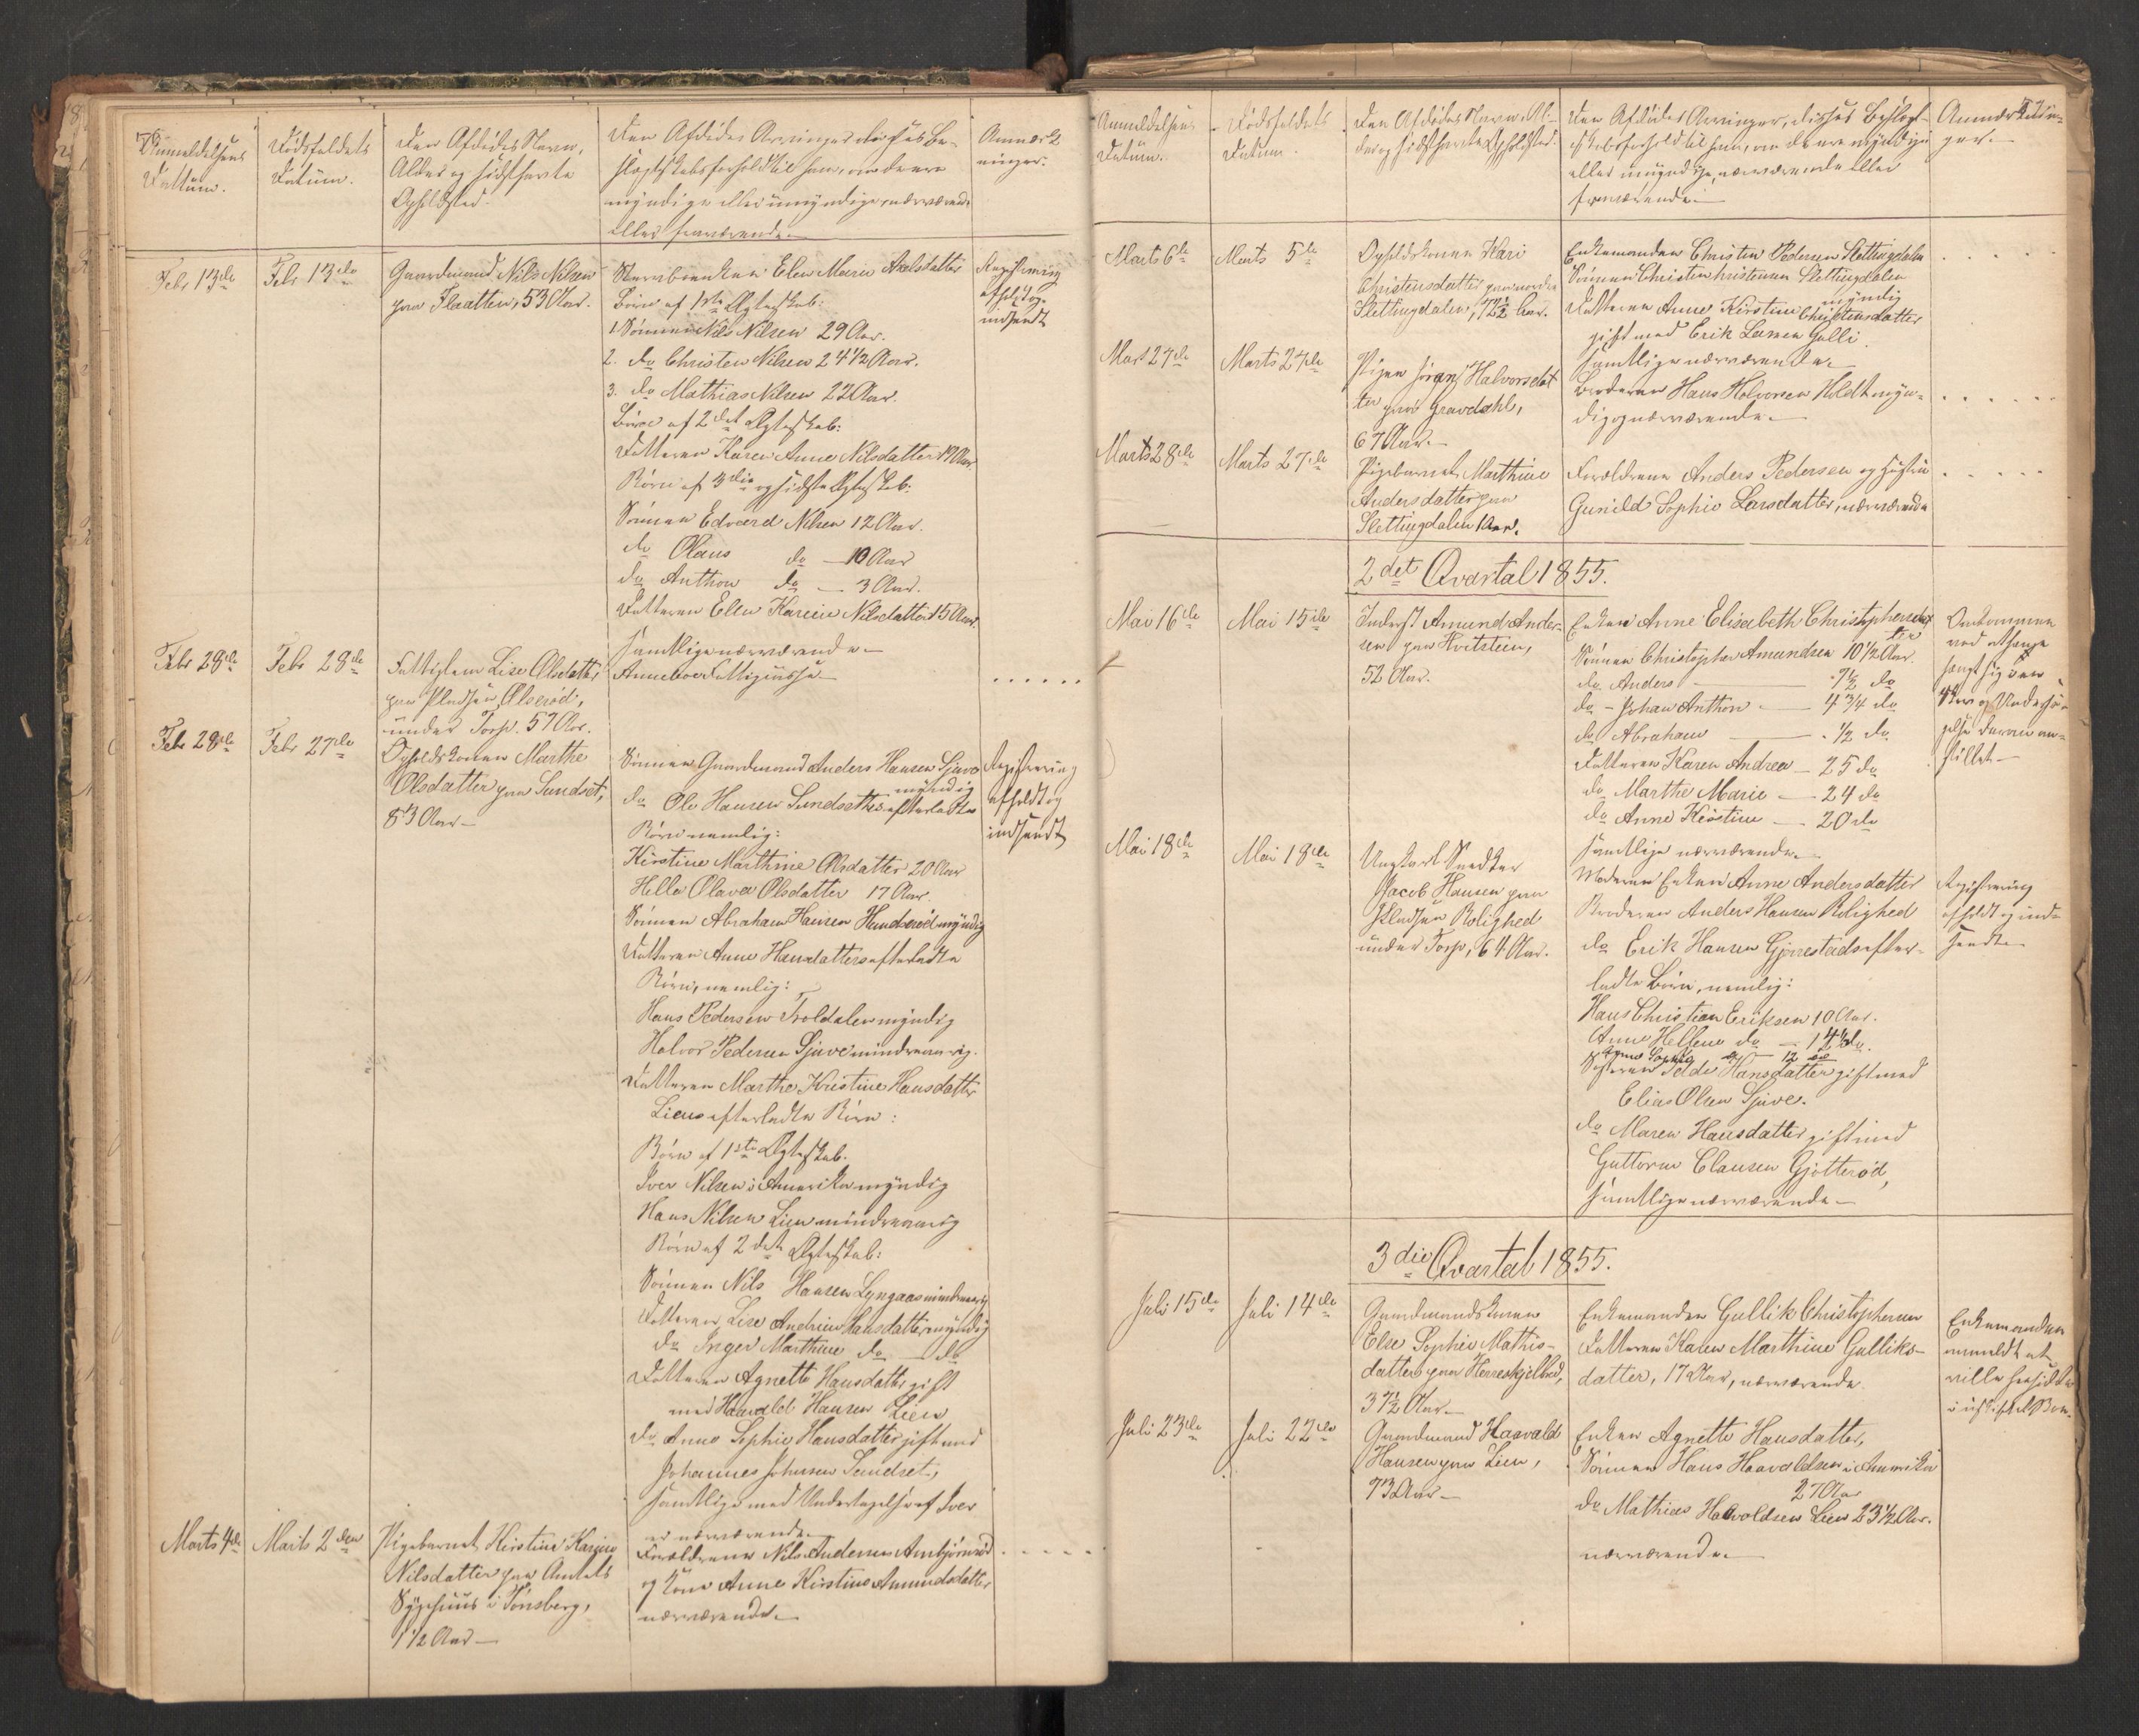 Anmeldelsens
Dattum.
Dødsfaldets
Datum.
Den Afdødes Navn,
Alder og sidsthavte
Opholdsted.
Den Afdødes Arvinger disses Be-
slægtskabsforhold til ham, om de ere
myndige eller umyndige, nærværende
eller fraværende.
Anmærk
ninger.
Febr 13de
Febr 13de
Gaardmand Nils Nilsen
paa Flaatten, 53 Aar.
Stervboenken Elen Marie Axelsdatter
Børn af 1ste Ægteskab:
1. Sønnen Nils Nilsen 29 Aar.
2. do Christen Nilsen 24 1/2 Aar.
3. do Mathias Nilsen 22 Aar.
Børn af 2det Ægteskab:
Datteren Karen Anne Nilsdatter 19 Aar
Børn af 3die og sidste Ægteskab:
Sønnen Edvard Nilsen 12 Aar.
do Olaus do — 10 Aar
do Anthon do — 3 Aar.
Datteren Ellen Karine Nilsdatter 15 Aar.
samtlige nærværende.
Registrering
afholdt og
indsendt
Febr 28de
Febr 28de
Fattiglem Lise Olsdatter
paa Pladsen Olserød,
under Torp. 57 Aar.
Anneboe Fattigcasse
......
Febr 28de
Febr 27de
Opholdskonen Marthe
Olsdatter paa Sundset,
83 Aar —
Sønnen Gaardmand Anders Hansen Sjuve
myndig
do Ole Hansen Sundsets efterladte
Børn nemlig:
Kirstine Marthine Olsdatter 20 Aar
Helle Olava Olsdatter 17 Aar.
Sønnen Abraham Hansen Hunderød myndig
Datteren Anne Hansdatters efterladte
Børn, nemlig:
Hans Pedersen Troldalen myndig
Halvor Pedersen Sjuve mindreaarig.
Datteren Marthe Kristine Hansdatter
Liens efterladte Børn:
Børn af 1ste Ægteskab.
Iver Nilsen i Amerika myndig
Hans Nilsen Lien mindreaarig
Børn af 2det Ægteskab:
Sønnen Nils Hansen Lyngaas mindreaarig
Datteren Lise Andrine Hansdatter myndig
do Inger Marthine do — do
Datteren Agnette Hansdatter gift
med Haavald Hansen Lien
do Anne Sophie Hansdatter gift med
Johannes Johnsen Sundset,
samtlige med Undtagelse af Iver
er nærværende.
Registrering
afholdt og
indsendt
Marts 4de
Marts 2den
Pigebarnet Kirstine Karine
Nilsdatter paa Amtets
Sygehuus i Tønsberg,
1 1/2 Aar —
Forældrene Nils Andersen Ambjørnrød
og Kone Anne Kirstine Amundsdatter
nærværende.
.....
Anmeldelsens
Datum.
Dødsfaldets
Datum.
Den Afdødes Navn, Al-
der og sidsthavte Opholdsted.
Den Afdødes Arvinger, disses Beslægt-
skabsforhold til ham, om de ere myndige
eller umyndige, nærværende eller
fraværende.
Anmærknin-
ger.
Marts 6te
Marts 5te
Opholdskonen Kari
Christensdatter paa nordre
Slettingdalen, 72 1/2 Aar.
Enkemanden Christen Pedersen Slettingdalen
Sønnen Christen Christensen Slettingdalen
myndig
Datteren Anne Kirstine Christensdatter
gift med Erik Larsen Gulli.
samtlige nærværende.
.....
Marts 27de
Marts 27de
Pigen Jøran Halvorsdat
ter paa Gravdahl,
67 Aar.
Broderen Hans Halvorsen Holdt myn-
dig og nærværende.
......
Marts 28de
Marts 27de
Pigebarnet Marthine
Andersdatter paa
Slettingdalen 1 Aar.
Forældrene Anders Pedersen og Hustru
Gunild Sophie Larsdatter, nærværende
....
2det Qvartal 1855.
Mai 16de
Mai 15de
Inderst Amund Ander-
sen paa Hvitsteen,
52 Aar.
Enken Anne Elisabeth Christophersdat
ter
Sønnen Christopher Amundsen 10 1/2 Aar.
do Anders — 7 1/2 do
do – Johan Anthon — 4 3/4 do
do Abraham — 1/2 do
Datteren Karen Andrea — 25 do
do Marthe Marie — 24 do
do Anne Kirstine — 20 do
samtlige nærværende.
Omkommen
ved at have
hængt sig
og Undersø-
gelse derom an-
stillet —
Mai 18de
Mai 18de
Ungkarl Snedker
Jacob Hansen paa
Pladsen Rolighed
under Torp, 64 Aar.
Moderen Enken Anne Andersdatter
Broderen Anders Hansen Rolighed
do Erik Hansen Gjørestads efter-
ladte Børn, nemlig:
Hans Christian Eriksen 10 Aar.
Anne Hellene do — 14 1/2 do.
Anne Sophie do — 12 do
Søsteren Helde Hansdatter gift med
Elias Olsen Sjuve.
do Maren Hansdatter gift med
Guttorm Clausen Gjøtterød,
samtlige nærværende —
Registrering
afholdt og ind-
sendt.
3die Qvartal 1855.
Juli 15de
Juli 14de
Gaardmandskonen
Else Sophie Mathis-
datter paa Herreskjelbed,
37 1/2 Aar.
Enkemanden Gullik Christophersen
Datteren Karen Marthine Gulliks-
datter, 17 Aar, nærværende.
Enkemanden
anmeldt at
ville hensidde
i uskiftet Boe.
Juli 23de
Juli 22de
Gaardmand Haavald
Hansen paa Lien,
73 Aar —
Enken Agnette Hansdatter,
Sønnen Hans Haavaldsen i Amerika
27 Aar
do Mathias Haavoldsen Lien 23 1/2 Aar.
nærværende.